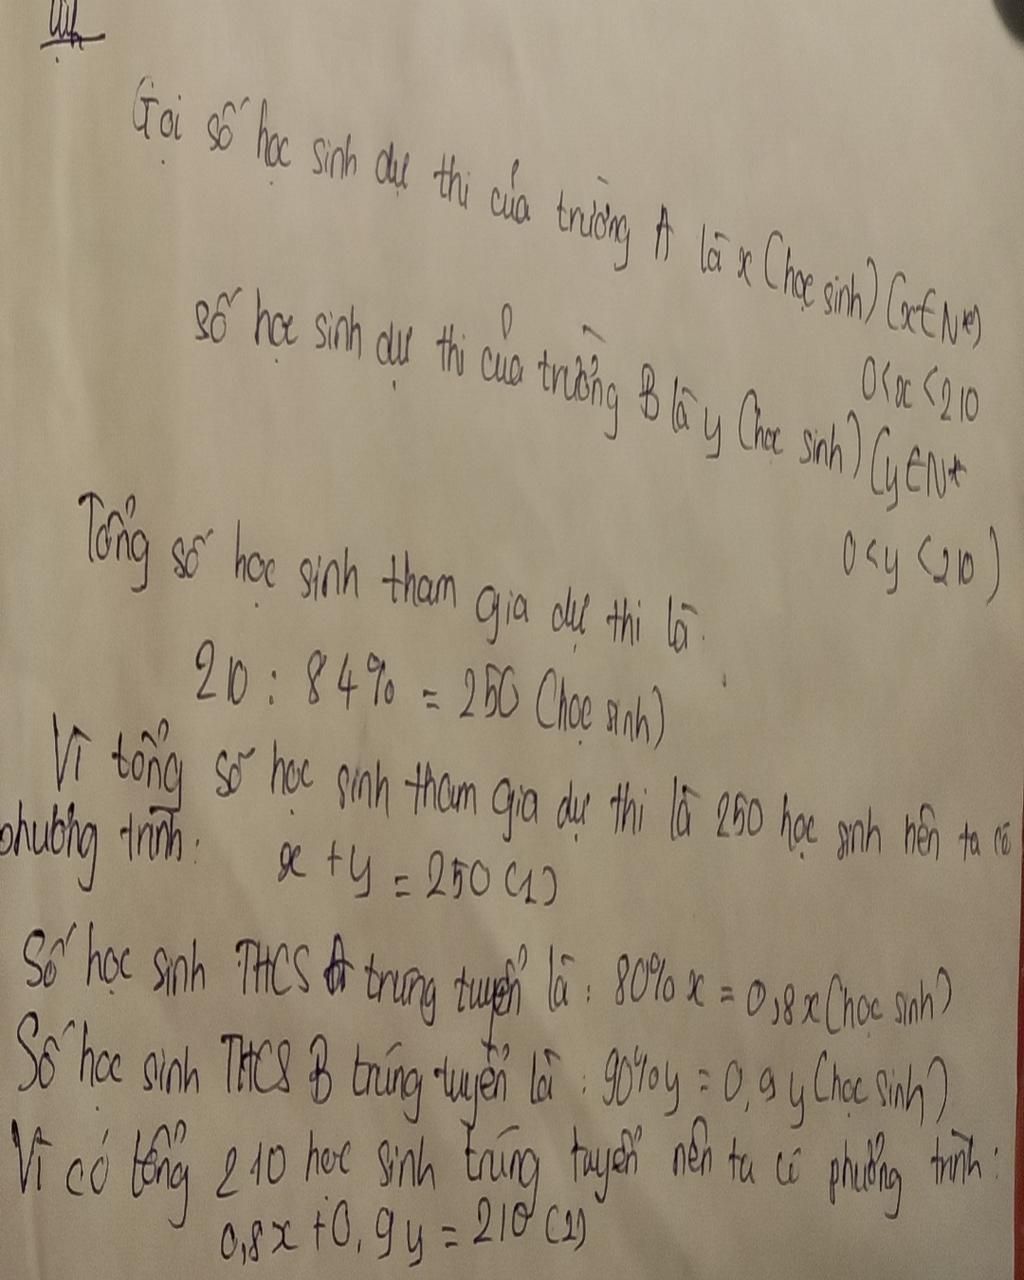 Gọi số học sinh dự thi của trường A là x (học sinh) (x∈N*)
0<x<210
số học sinh dự thi của trường B là y (học sinh) (y∈N*
0<y<210)
Tổng số học sinh tham gia dự thi là.
210 : 84% = 250 (học sinh)
Vì tổng số học sinh tham gia dự thi là 250 học sinh nên ta có
phương trình: x + y = 250 (1)
Số học sinh THCS A trúng tuyển là : 80% x = 0,8x (học sinh)
Số học sinh THCS B trúng tuyển là : 90% y = 0,9 y (học sinh)
Vì có tổng 210 học sinh trúng tuyển nên ta có phương trình :
0,8x + 0,9 y = 210 (2)